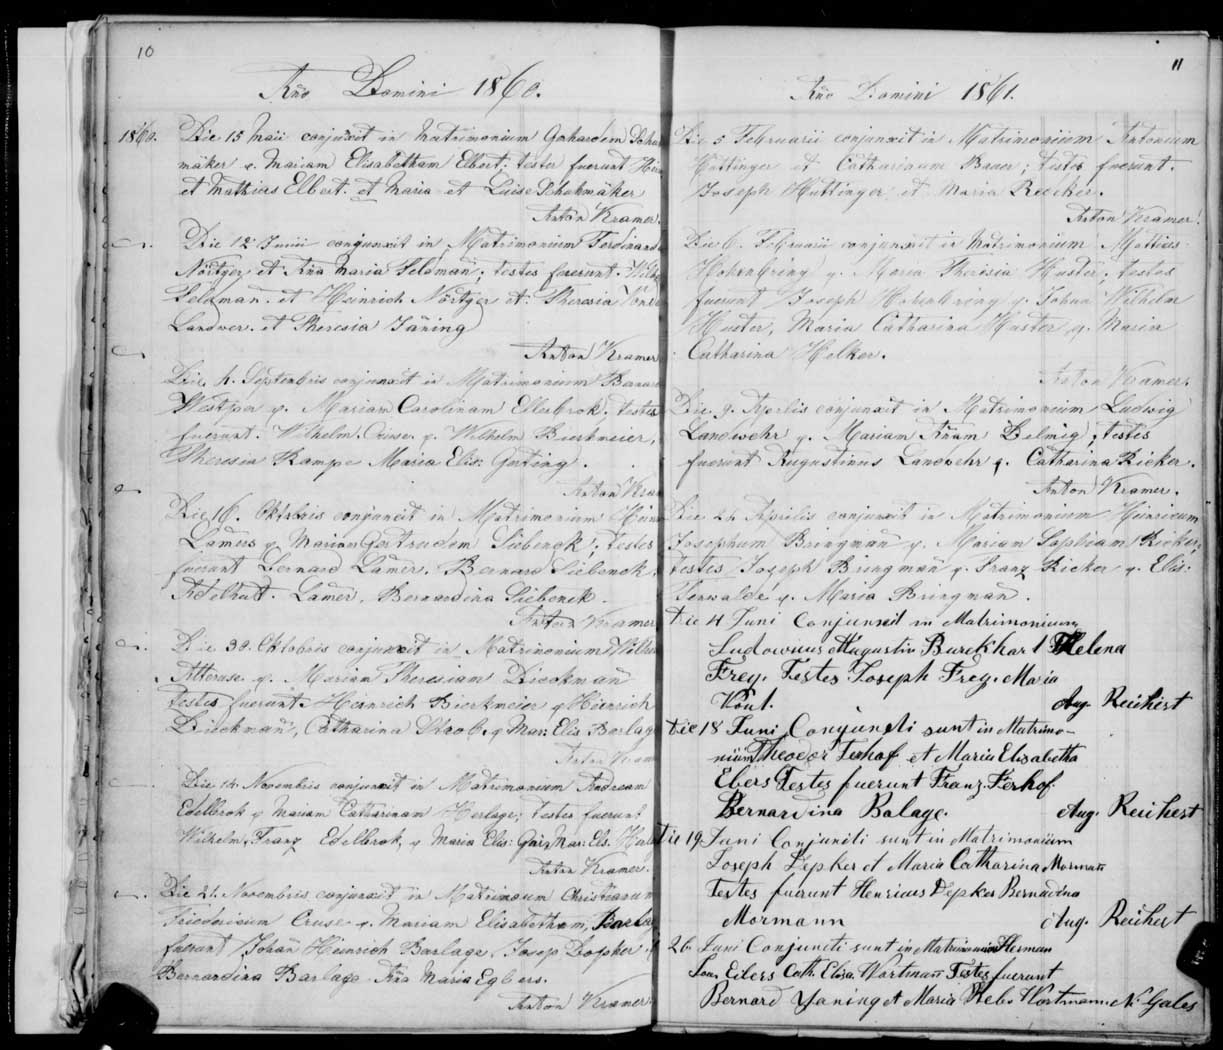 10
Año Domini 1860.
1860. Die 15 Maii conjunxit in Matrimonium Gerhardem Schu
mäker & Mariam Elisabetham Elbert; testes fuerunt Hein
et Mathias Elbert et Maria et Luise Schuhmäker
Anton Kramer.
Die 12 Junii conjunxit in Matrimonium Ferdinand
Nörtger et Aña Maria Feldmañ; testes fuerunt
Feldman. et Heinrich Nörtger et Theresia
Landwer. et Theresia Jäning
Anton Kramer
Die 4. Septembris conjunxit in Matrimonium Bernard
Westpa & Mariam Carolinam Ellerbrok. testes
fuerunt. Wilhelm Cruse & Wilhelm Bierkmeier,
Theresia Kampe Maria Elis: Guting.
Anton Kram
Die 16. Oktobris conjunxit in Matrimonium Hein
Lamers & Mariam Gertrudem Siebenek; testes
fuerunt Bernard Lamer. Bernard Siebenek.
Adelheit Lamer, Bernardina Siebenek.
Anton Kramer
Die 30. Oktobris conjunxit in Matrimonium Wilhel
& Mariam Theresiam Dieckmañ
testes fuerunt Heinrich Bierkmeier & Heinrich
Dieckmañ, Catharina & Mar: Elis Barlag
Anton Kram
Die 14. Novembris conjunxit in Matrimonium Andream
Edelbrok & Mariam Catharinam Herlage; testes fuerunt
Wilhelm, Franz Edelbrok, & Maria Elis: Mar: Els. Herla
Anton Kramer.
Die 21. Novembris conjunxit in Matrimoium Christianum
Friedericum Cruse & Mariam Elisabetham Barlag
fuerunt Johañ Heinrich Barlage, Josep
Bernardina Barlage Aña Maria Egbers.
Anton Kramer

11
Año Domini 1861.
Die 5 Februarii conjunxit in Matrimonium Antonium
Hüttinger et Catharinam Bauer; testes fuerunt.
Joseph Hüttinger et Maria Reicher.
Anton Kramer.
Die 6. Februarii conjunxit in Matrimonium Mattias
Hohenbring & Maria Theresia Huster; testes
fuerunt Joseph Hohenbring & Johan Wilhelm
Huster, Maria Catharina Huster & Maria
Catharina Holker.
Anton Kramer.
Die 9. Aprilis conjunxit in Matrimonium Ludwig
Landwehr & Mariam Añam Delmig; testes
fuerunt Augustinus Landwehr & Catharina Ricker.
Anton Kramer.
Die 24 Aprilis conjunxit in Matrimonium Heinricum
Josephum Bringmañ & Mariam Sophiam Ricker;
testes Joseph Bringmañ & Franz Ricker & Elis:
Terwalde & Maria Bringman.
Die 4 Juni Conjunxit in Matrimonium
Ludowicus Augustin Burckhart Helena
Frey. Testes Joseph Frey. Maria
Aug. Reichert
Die 18 Juni Conjuncti sunt in Matrimo-
nium Theodor Terhof et Maria Elisabetha
Ebers Testes fuerunt Franz Terhof
Bernardina Balage. Aug. Reichert
Die 19 Juni Conjuncti sunt in Matrimonium
Joseph Depker et Maria Catharina Mormañ
Testes fuerunt Henricus Depker Bernardina
Mormann Aug. Reichert
26 Juni Conjuncti sunt in Matrimonium Herman
Eilers Cath. Elisa. Wortmañ Testes fuerunt
Bernard Janing et Maria Wortmann. N. Gales